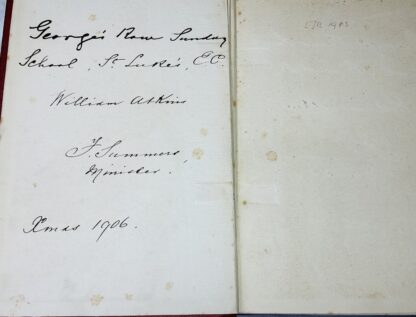 George's Row Sunday
School, St Luke's, E.C.
William Atkins
F. Summers,
Minister.
Xmas 1906.